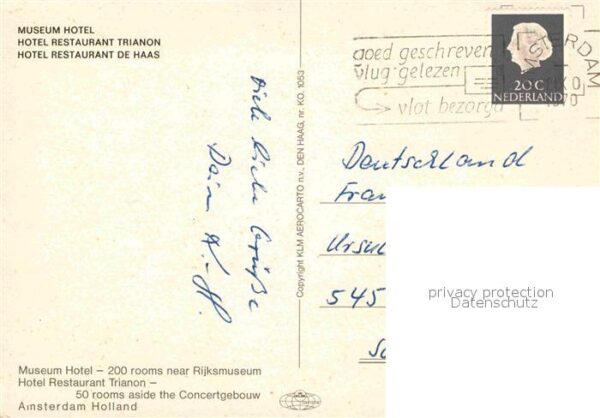 MUSEUM HOTEL
HOTEL RESTAURANT TRIANON
HOTEL RESTAURANT DE HAAS
goed geschreven
vlug gelezen
vlot bezorgd
AMSTERDAM
1970
20 C
NEDERLAND
Viele liebe Grüße
Copyright KLM AEROCARTO n.v., DEN HAAG, nr. KO. 1053
Deutschland
Fra
Ursu
545
privacy protection
Datenschutz
Museum Hotel – 200 rooms near Rijksmuseum
Hotel Restaurant Trianon –
50 rooms aside the Concertgebouw
Amsterdam Holland